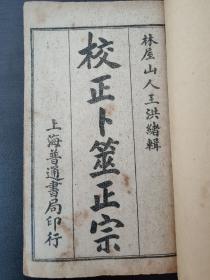 林屋山人王洪緒輯
校正卜筮正宗
上海普通書局印行